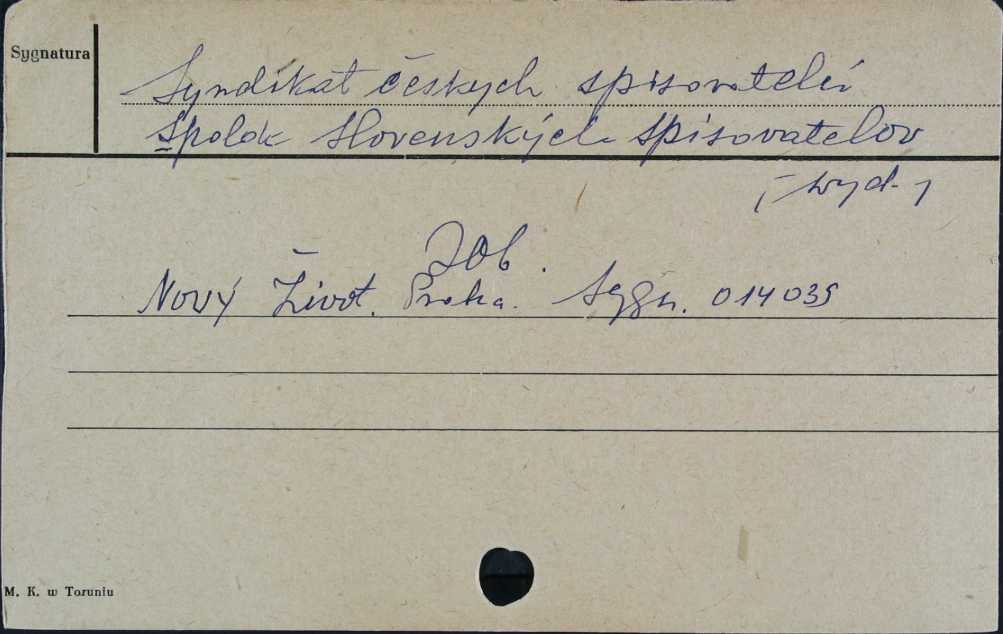 Sygnatura
Syndikát českych spisovatelů
Spolok slovenských spisovatelov
[wyd.]
Zob.
Nový Život. Praha. Sygn. 014035
M. K. w Toruniu